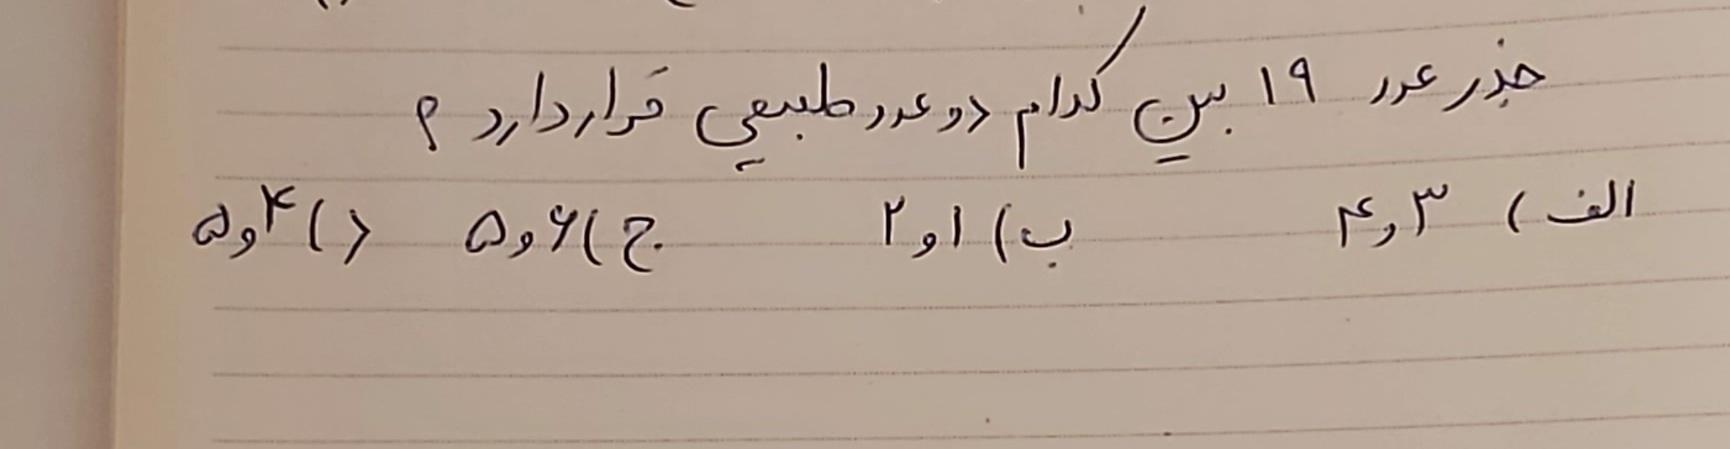 جذر عدد ۱۹ بین کدام دو عدد طبیعی قرار دارد ؟
الف) ۳ و ۴ ب) ۱ و ۲ ج) ۶ و ۵ د) ۴ و ۵